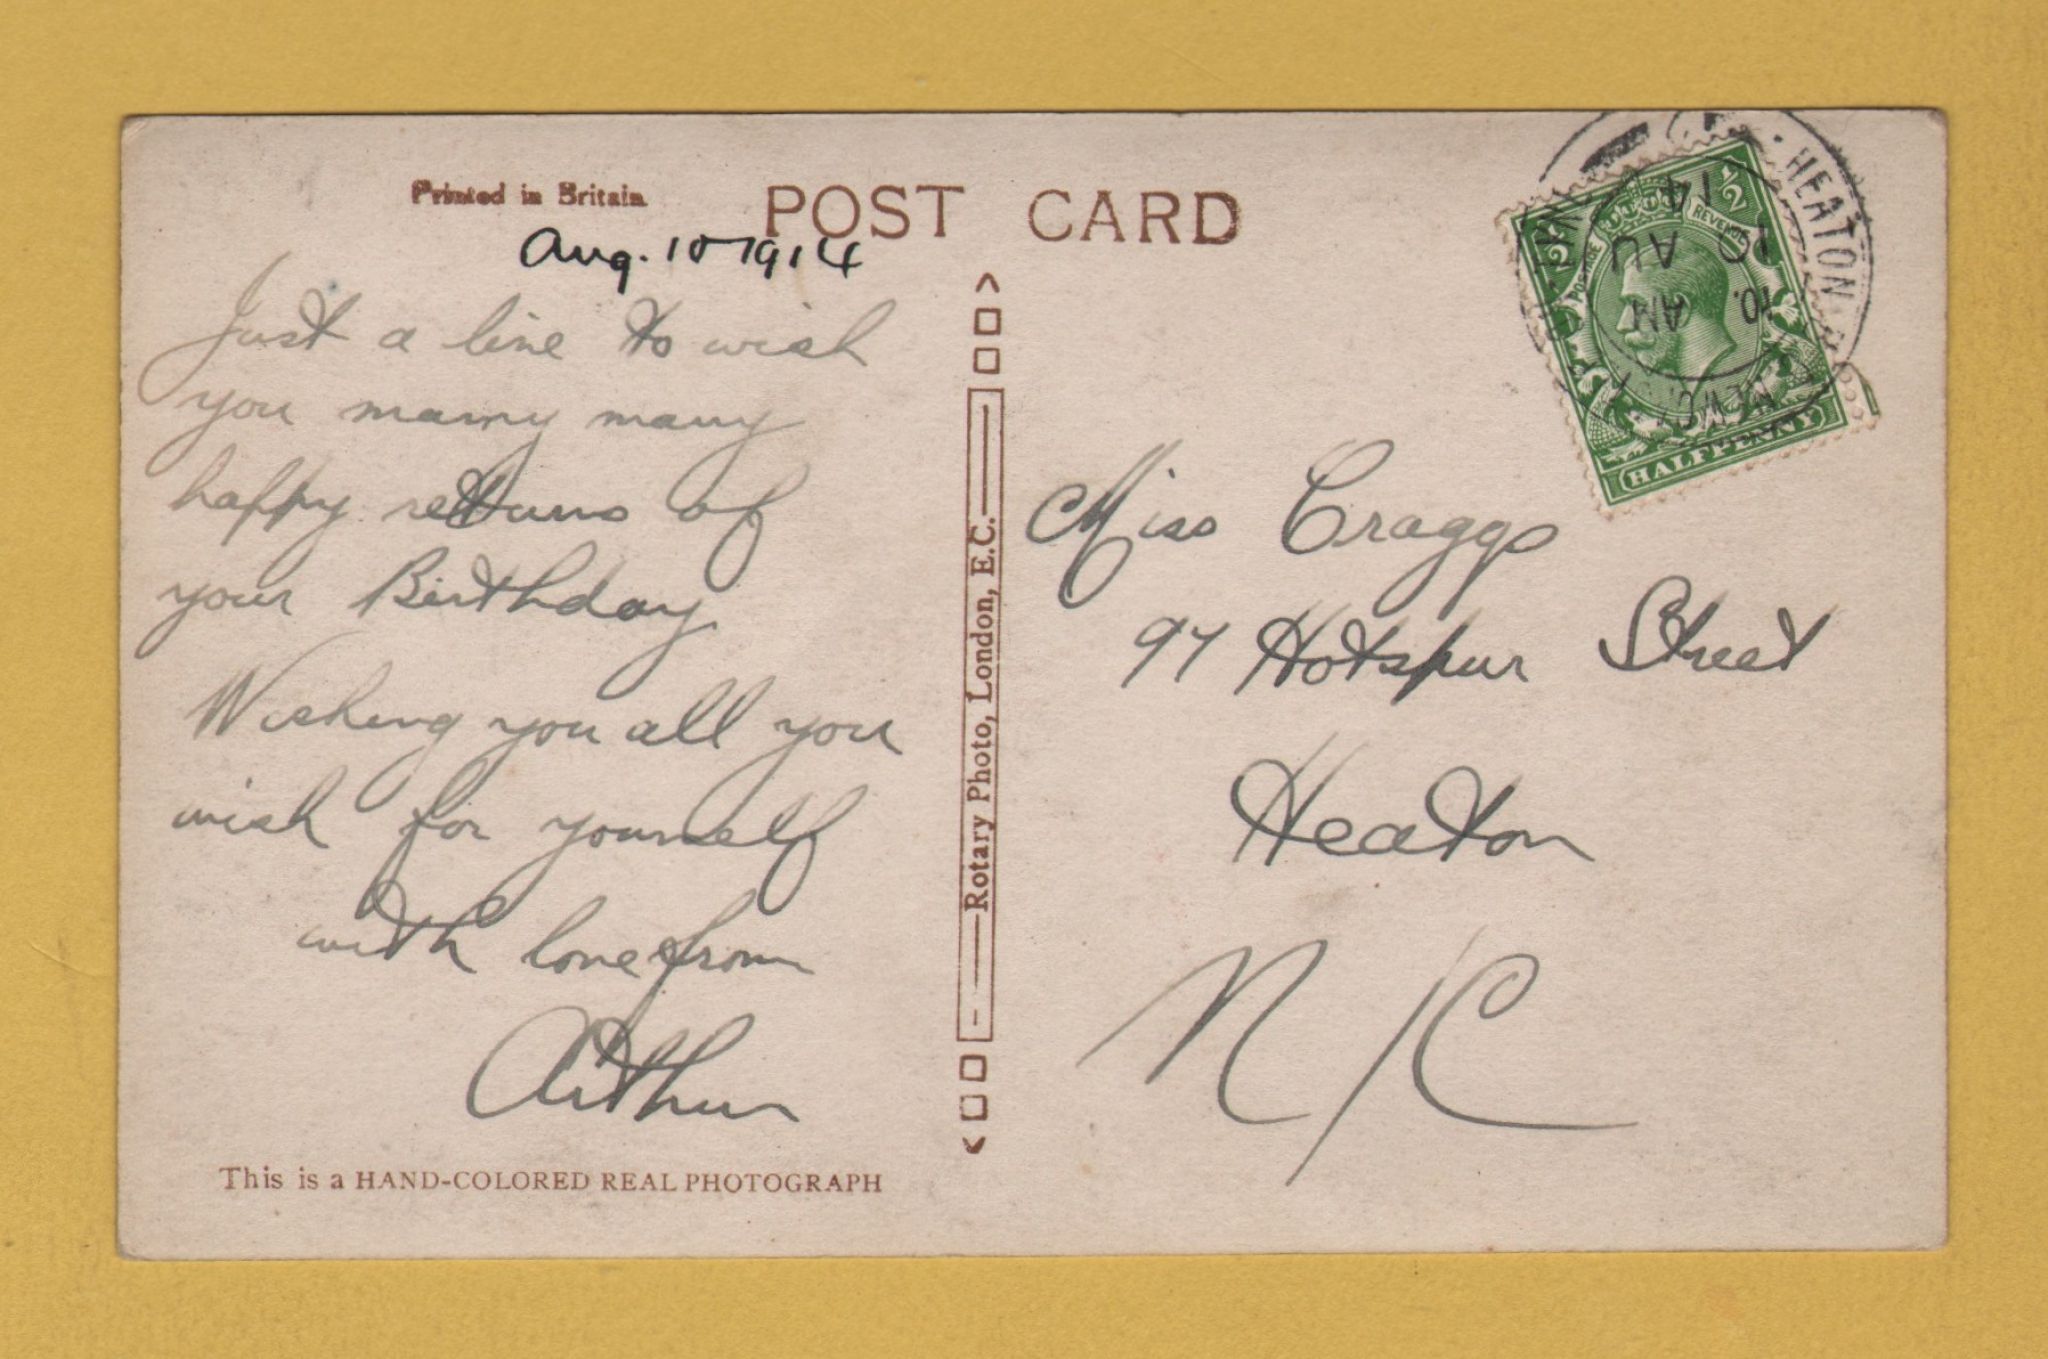 Printed in Britain
POST CARD
Aug. 10 1914
Just a line to wish
you many many
happy returns of
your Birthday
Wishing you all you
wish for yourself
with love from
Arthur
This is a HAND-COLORED REAL PHOTOGRAPH
Rotary Photo, London, E.C.
HEATON
10. AM
10 AU
14
½ ½
POSTAGE REVENUE
HALFPENNY
Miss Craggs
97 Hotspur Street
Heaton
N/C